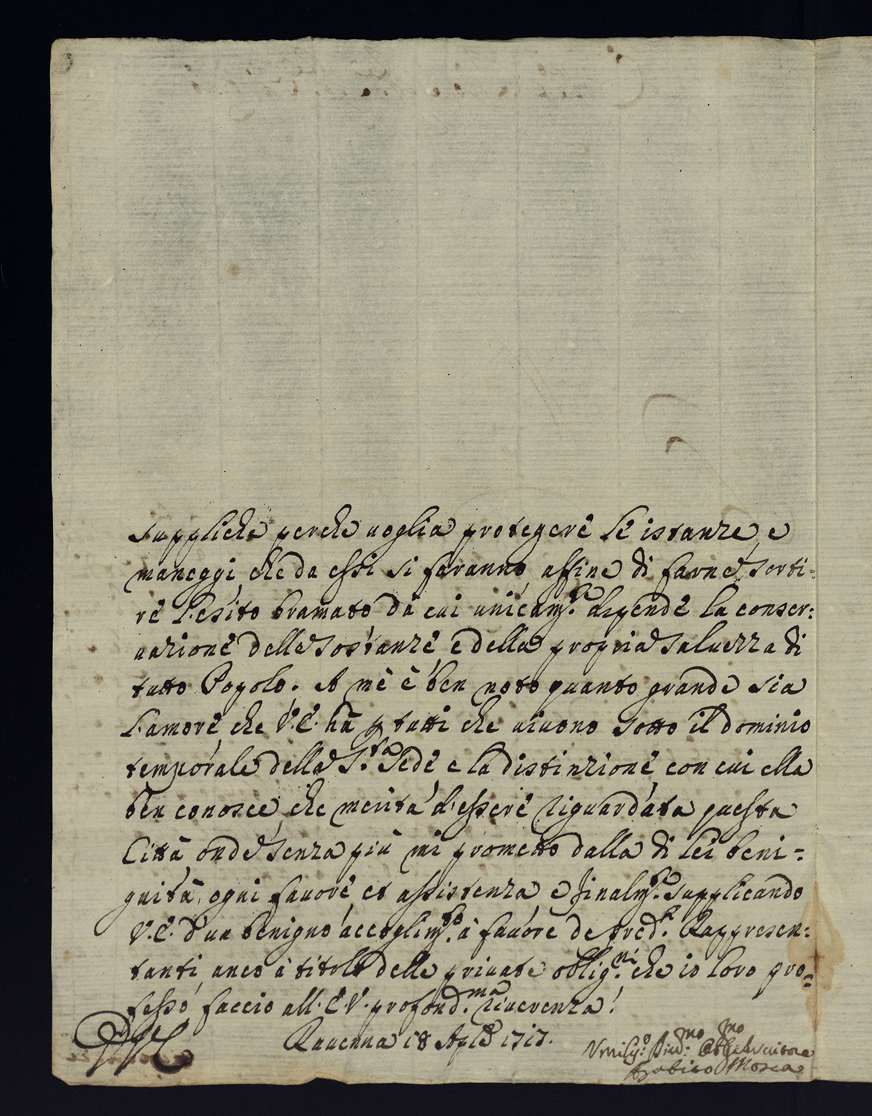 suppliche perche voglia protegere le istanze, e
maneggi che da essi si faranno affine di farne sorti-
re l'esito bramato da cui unicam.te dipende la conser:
vazione delle sostanze e della propria salvezza di
tutto Popolo. A me è ben noto quanto grande sia
l'amore che V.E. ha p tutti che vivono sotto il dominio
temporale della S.ta Sede e la distinzione con cui ella
ben conosce che merita d'essere riguardata questa
Città onde senza più mi prometto dalla di lei beni-
gnità, ogni favore et assistenza e finalm.te supplicando
V.E. d'un benigno accoglim.to à favore de pred.i Rappresen:
tanti anco à titolo delle private oblig.ni che io loro pro-
fesso, faccio all'E.V. profond.ma riverenza.
Ravenna 18 Aple 1717.
Servitore
Mosca